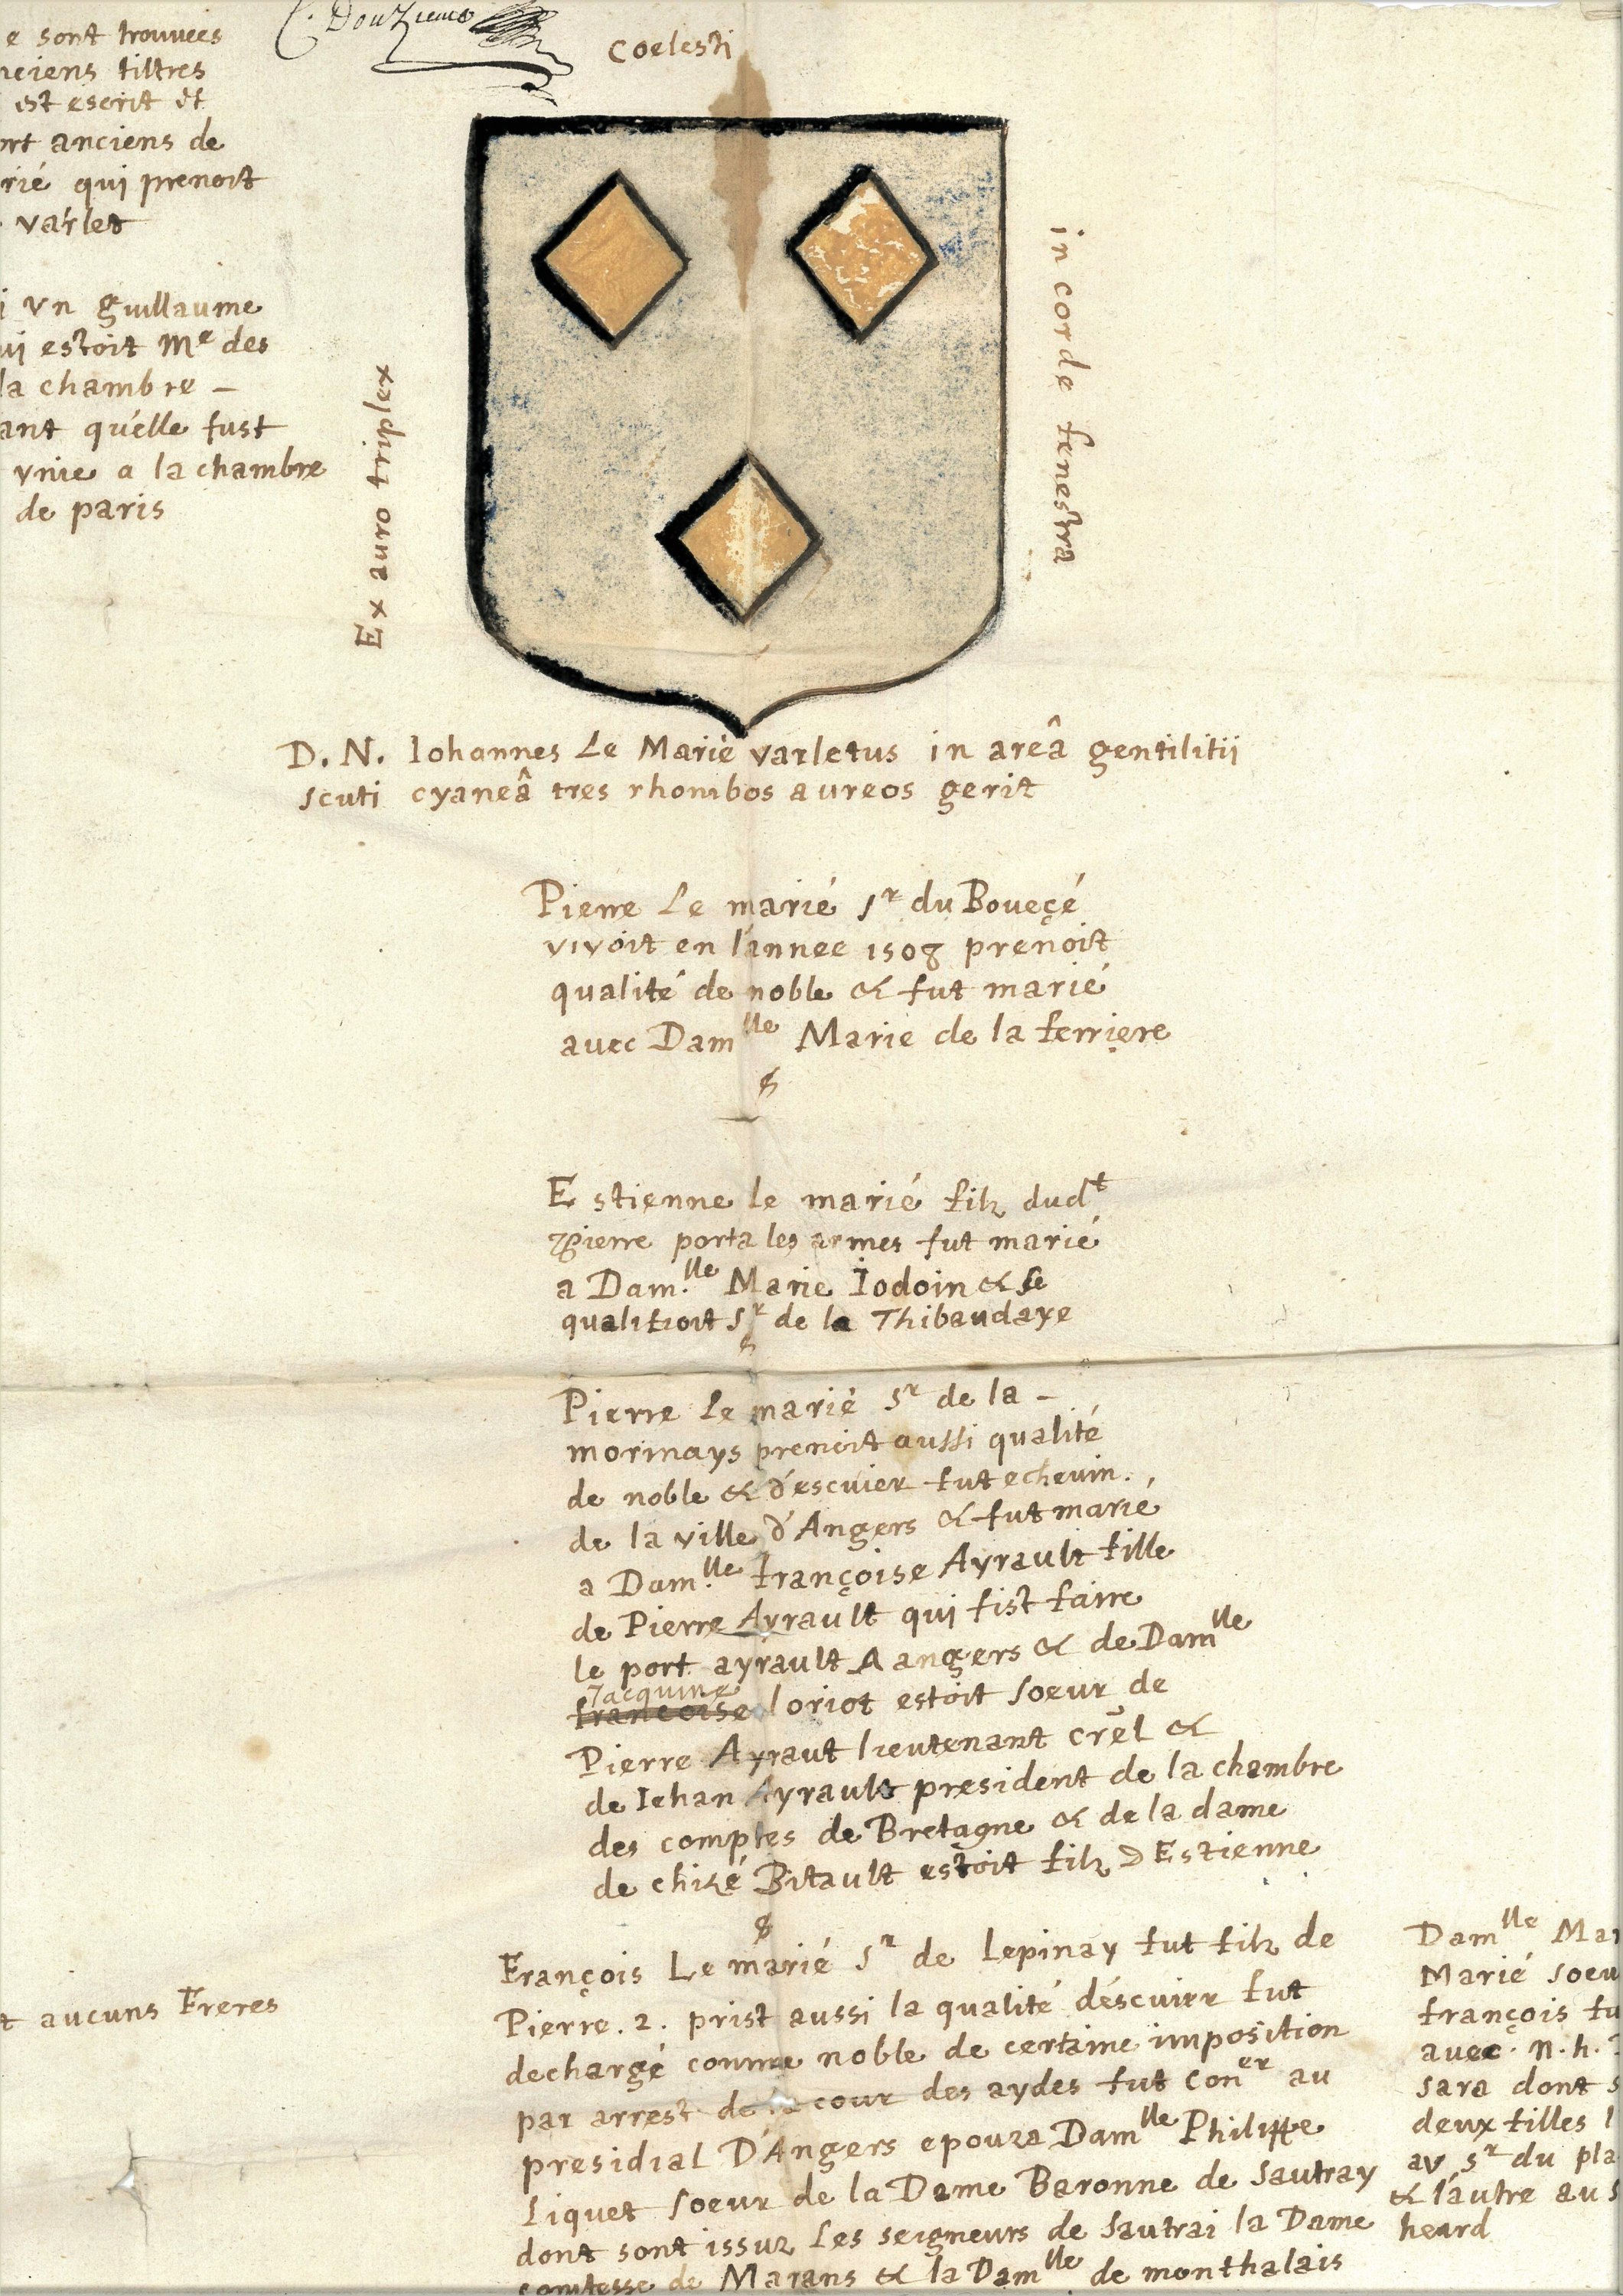 e sont trouuees
nciens tiltres
est escrit et
ort anciens de
rié qui prenoit
varlet
i vn guillaume
ui estoit Me des
la chambre -
ant qu'elle fust
vnie a la chambre
de paris
C. Douzieme
coelesti
Ex auro triplex
in corde fenestra
D. N. Iohannes Le Marié varletus in areâ gentilitii
scuti cyaneâ tres rhombos aureos gerit
Pierre Le marié sr du Boueçé
vivoit en l'annee 1508 prenoit
qualité de noble & fut marié
avec Damlle Marie de la ferriere
Estienne le marié filz dudt
Pierre porta les armes fut marié
a Dam.lle Marie Iodoin & se
qualifioit Sr de la Thibaudaye
Pierre Le marié Sr de la -
morinays prenoit aussi qualité
de noble & d'escuier fut echeuin.
de la ville d'Angers & fut marié
a Dam.lle françoise Ayrault fille
de Pierre Ayrault qui fist faire
le port ayrault A angers & de Damlle
Jacquine
francoise loriot estoit soeur de
Pierre Ayraut lieutenant crel &
de Iehan Ayrault president de la chambre
des comptes de Bretagne & de la dame
de chizé Bitault estoit filz d Estienne
François Le marié Sr de Lepinay fut filz de
Pierre. 2. prist aussi la qualité d'éscuier fut
dechargé comme noble de certaine imposition
par arrest de la cour des aydes fut Coner au
presidial D'Angers epouza Damlle Philippe
Liquet soeur de la Dame Baronne de Sautray
dont sont issuz Les seigneurs de Sautrai la Dame
comtesse de Marans & la Damlle de monthalais
t aucuns Freres
Damlle Mar
Marié soeu
françois fu
avec. n. h.
sara dont s
deux filles l
av sr du pla
& l'autre au s
heard